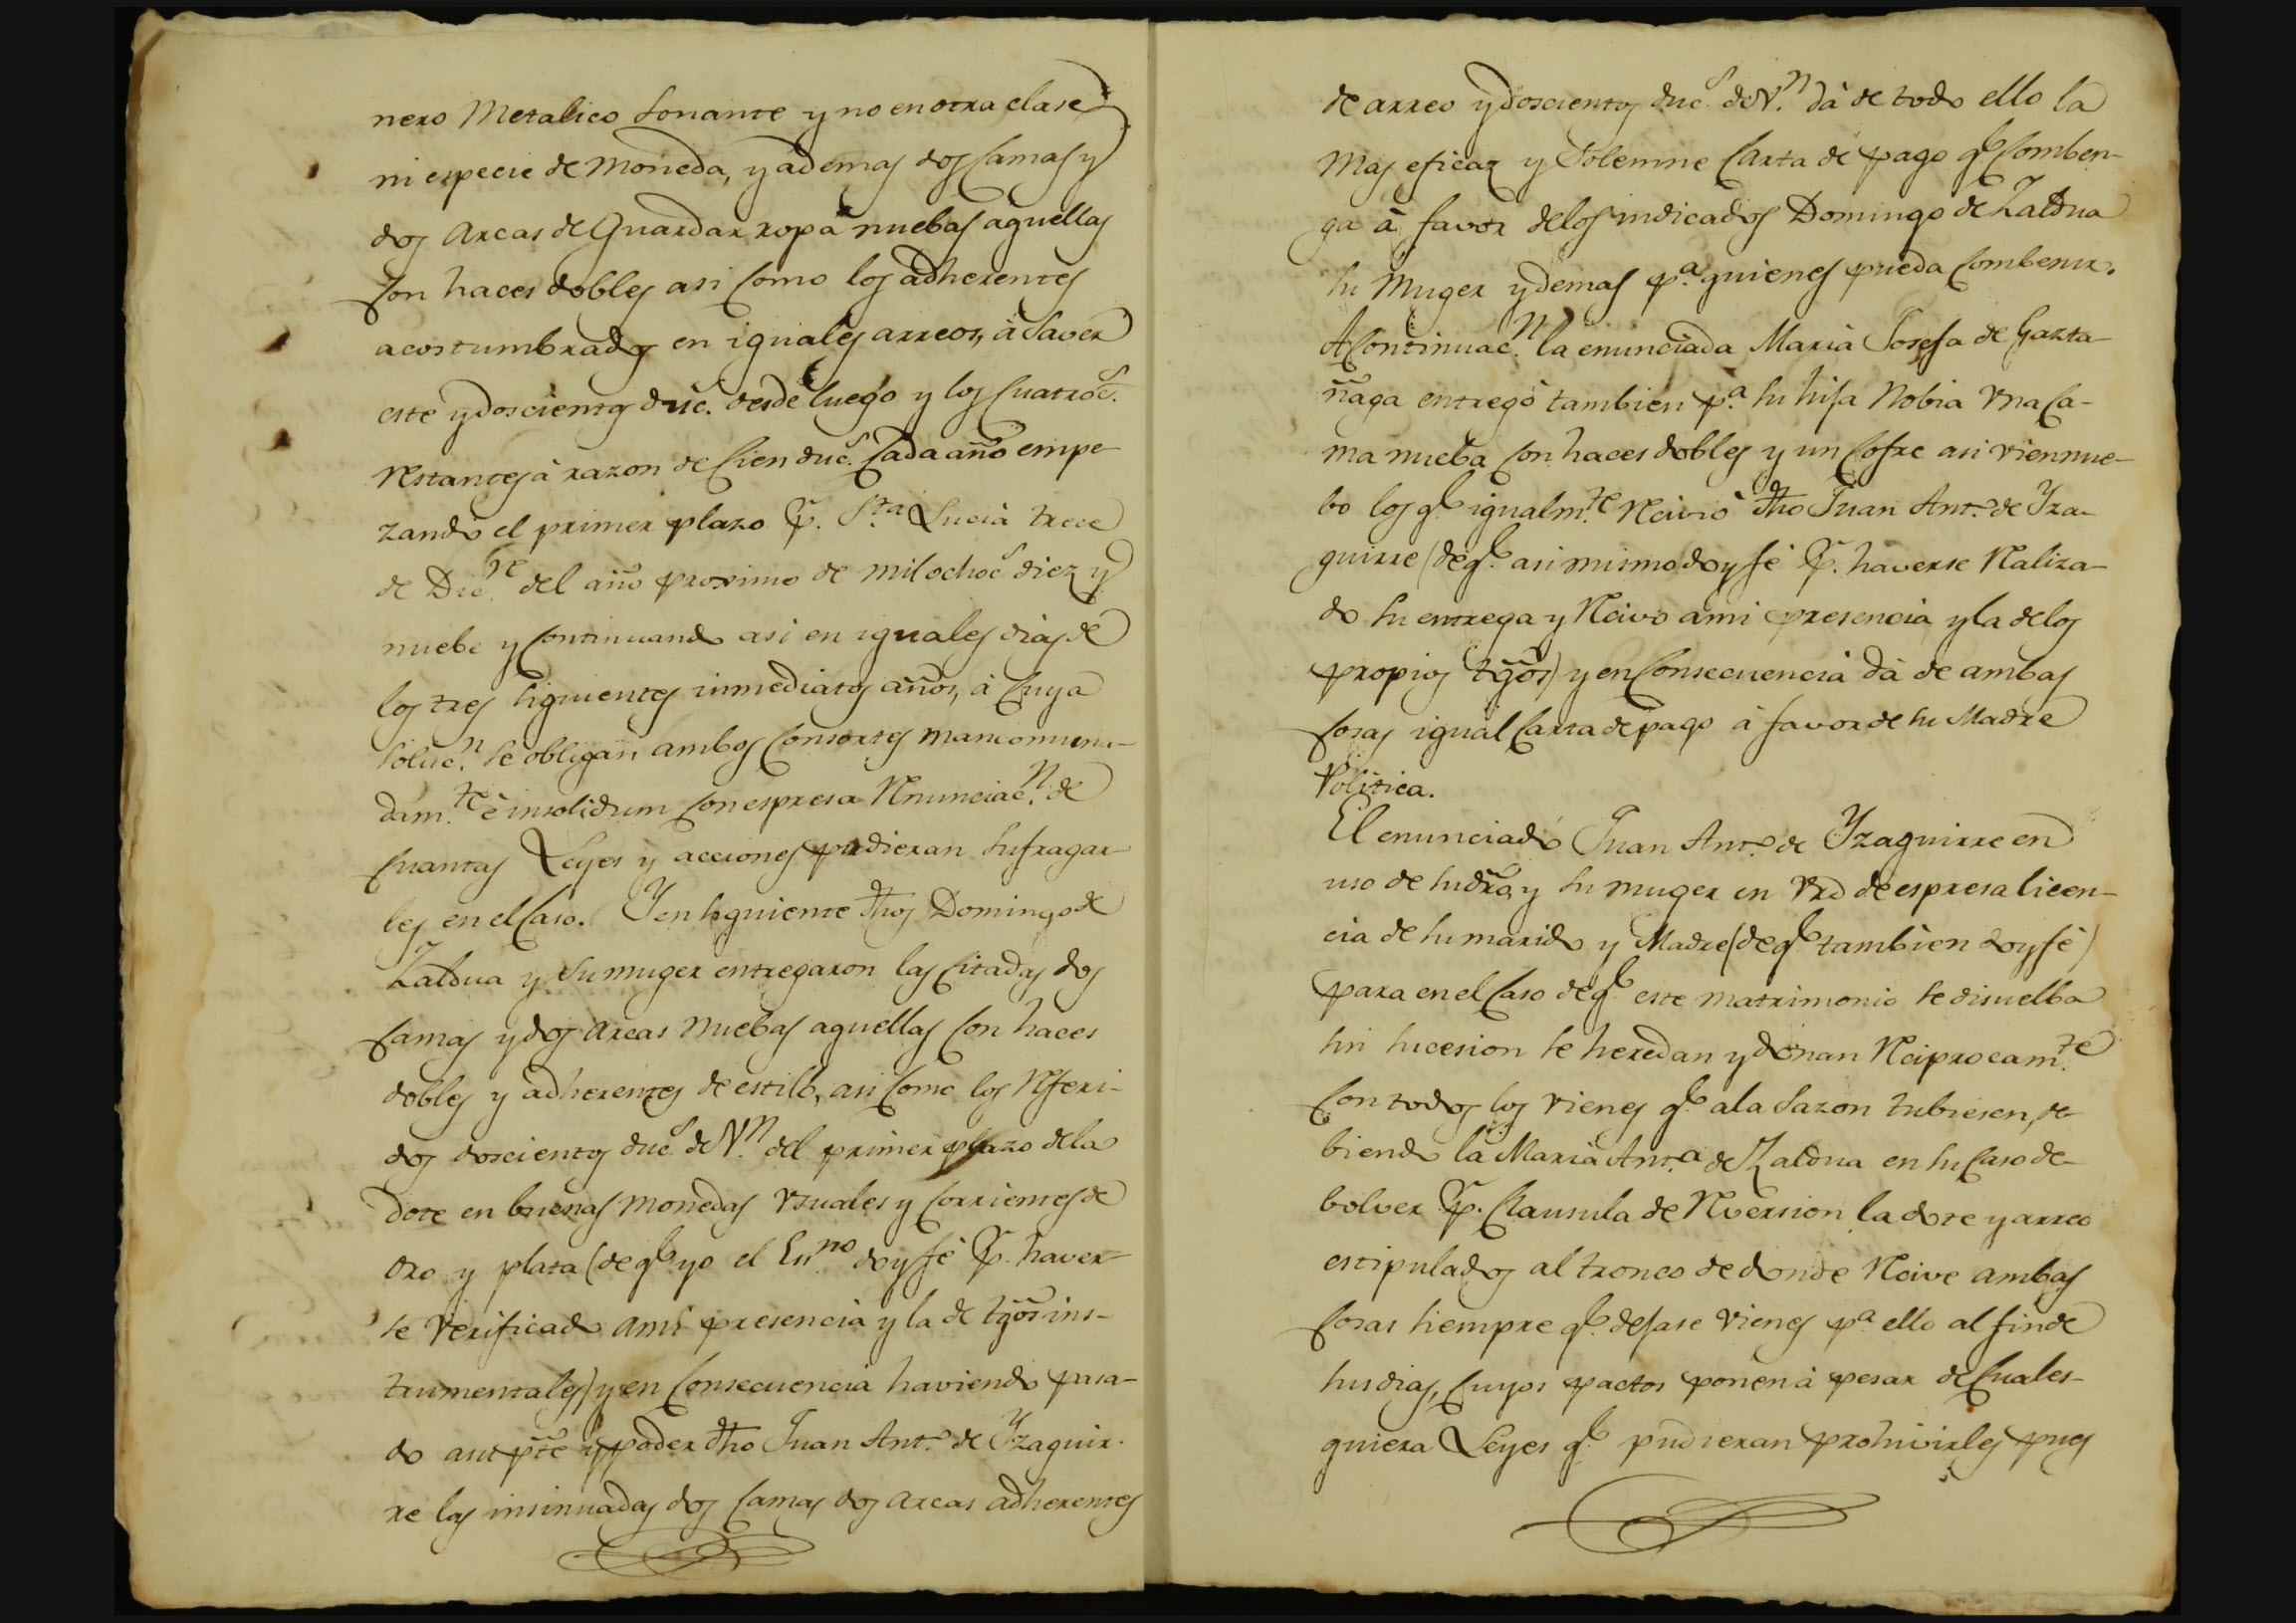 nero Metalico Sonante y no en otra clase
ni especie de Moneda, y ademas dos Camas y
dos Arcas de Guardar ropa nuebas aquellas
Con haces dobles asi Como los adherentes
acostumbrados en iguales arreos, à Saver
este y doscientos duc.s desde luego y los Cuatroc.s
restantes à razon de Cien duc.s Cada año empe-
zando el primer plazo p.r S.ta Lucia trece
de Dic.re del año proximo de mil ochoc.s diez y
nuebe y Continuando asi en iguales dias de
los tres siguientes inmediatos años, à Cuya
soluc.n se obligan ambos Consortes mancomuna-
dam.te è insolidum Con espresa renunciac.n de
Cuantas Leyes y acciones pudieran sufragar
les en el Caso. Y en siguiente dhos Domingo de
Zaldua y Su muger entregaron las Citadas dos
Camas y dos Arcas Nuebas aquellas Con haces
dobles y adherentes de estilo, asi Como los referi-
dos doscientos duc.s de V.n del primer plazo de la
dote en buenas Monedas Vsuales y Corrientes de
Oro y plata (de q.e yo el Es.no doy fé p.r haver-
se Verificado ami presencia y la de tgõs ins-
trumentales) y en Consecuencia haviendo pasa-
do a su pte y poder dho Juan Ant.o de Yzaguir-
re las insinuadas dos Camas dos Arcas adherentes
de arreo y doscientos duc.s de V.n dà de todo ello la
Mas eficaz y Solemne Carta de pago q.e Comben-
ga à favor de los indicados Domingo de Zaldua
su Muger y demas p.a quienes pueda Combenir.
A Continuac.n la enunciada Maria Josefa de Gazta-
ñaga entregò tambien p.a su hija Nobia Vna Ca-
ma nueba Con haces dobles y un Cofre asi vien nue-
bo los q.e igualm.te recivió dho Juan Ant.o de Yza-
guirre (de q.e asi mismo doy fé p.r haverse realiza-
do su entrega y recivo ami presencia y la de los
propios tgõs) y en Consecuencia dà de ambas
Cosas igual Carta de pago à favor de su Madre
Politica.
El enunciado Juan Ant.o de Yzaguirre en
uso de su dro, y su muger en Vrd de espresa licen-
cia de su marido y Madre (de q.e tambien doy fé)
para en el Caso de q.e este matrimonio se disuelba
sin sucesion se heredan y donan reciprocam.te
Con todos los vienes q.e ala Sazon tubiesen, de-
biendo la Maria Ant.a de Zaldua en su Caso de-
bolver p.r Clausula de reversion la dote y arreo
estipulados al tronco de donde recive ambas
Cosas siempre q.e dejase vienes p.a ello al fin de
sus dias, Cuyos pactos ponen à pesar de Cuales-
quiera Leyes q.e pudieran prohivirles pues